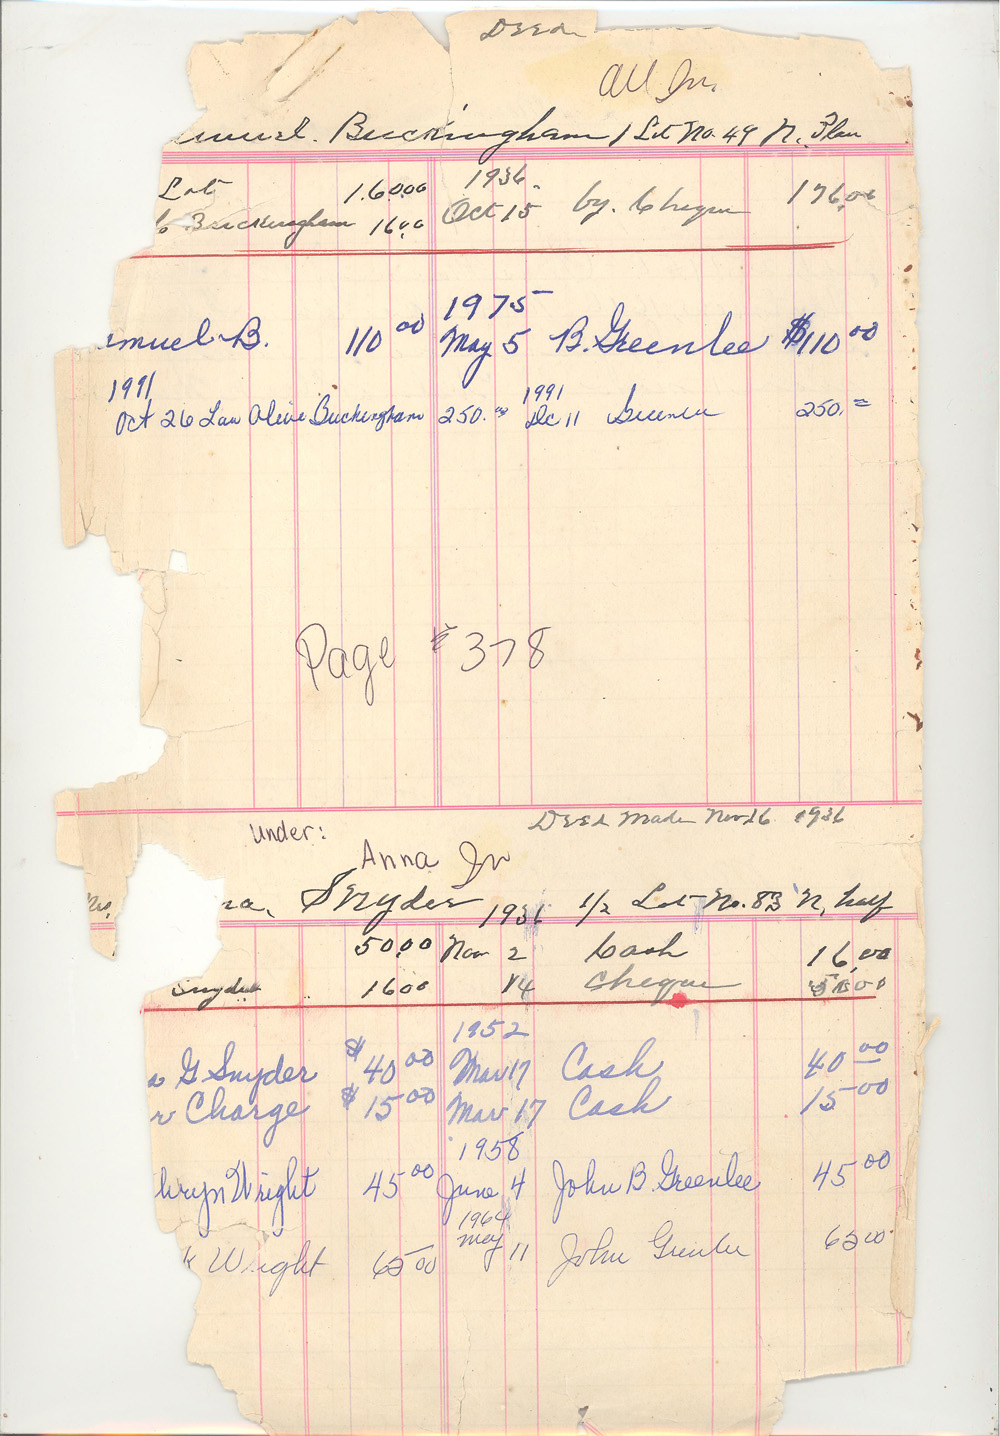 DEED
All In.
Buckingham 1 Lot No. 49 N. Plan
Lot 160.00 1936. Oct 15 by. Cheque 176.00
Buckingham 16.00
1975
muel B. 110 00 May 5 B. Greenlee $110 00
1991 1991
Oct 26 Law Olive Buckingham 250. 00 Dec 11 Greenlee 250. =
Page # 378
DEED Made Nov 26 1936
Under:
Anna In
Mrs, na, Snyder 1936 1/2 Lot No. 83 N, half
50.00 Nov 2 Cash 16.00
Snyder 16 00 14 Cheque 50.00
1952
a G Snyder $40 00 Mar 17 Cash 40 00
r Charge $15 00 Mar 17 Cash 15 00
1958
hryn Wright 45 00 June 4 John B. Greenlee 45 00
1964
k Wright 65 00 May 11 John Greenlee 65 00